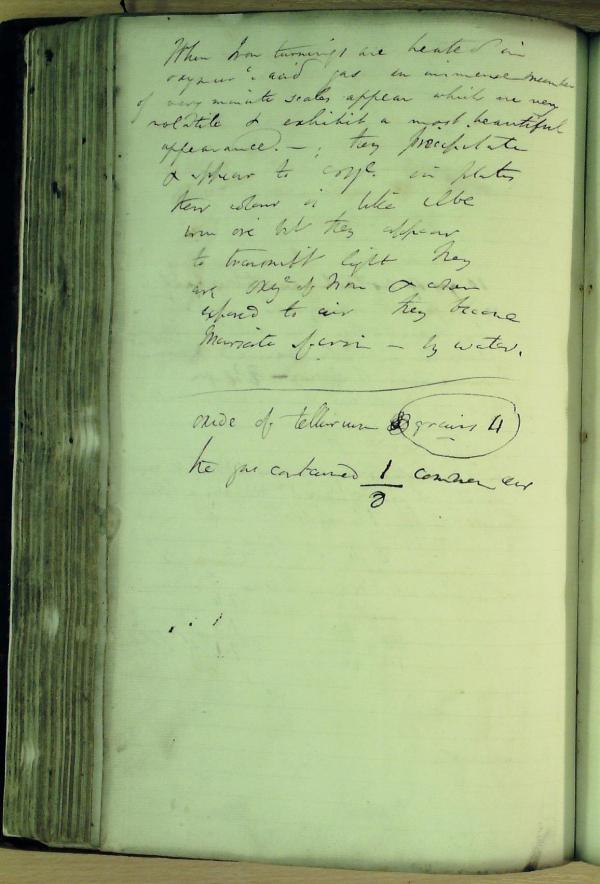 When Iron turnings are heated in
oxymurc acid gas an immense number
of very minute scales appear which are very
volatile & exhibit a most beautiful
appearance. — ; they precipitate
& appear to in plates
their colour is like Elba
iron ore but they appear
to transmitt light they
are oxyc of Iron & when
exposed to air they become
Muriate of iron — by water.
oxide of tellurium grains 4
the gas contained 1/3 common air